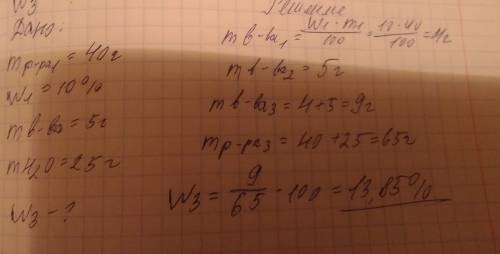 W3
Дано:
mр-ра1 = 40г
W1 = 10%
mв-ва = 5г
mH2O = 25г
W3 - ?
Решение
mв-ва1 = W1 · m1 / 100 = 10 · 40 / 100 = 4г
mв-ва2 = 5г
mв-ва3 = 4+5 = 9г
mр-ра3 = 40 + 25 = 65г
W3 = 9 / 65 · 100 = 13,85%